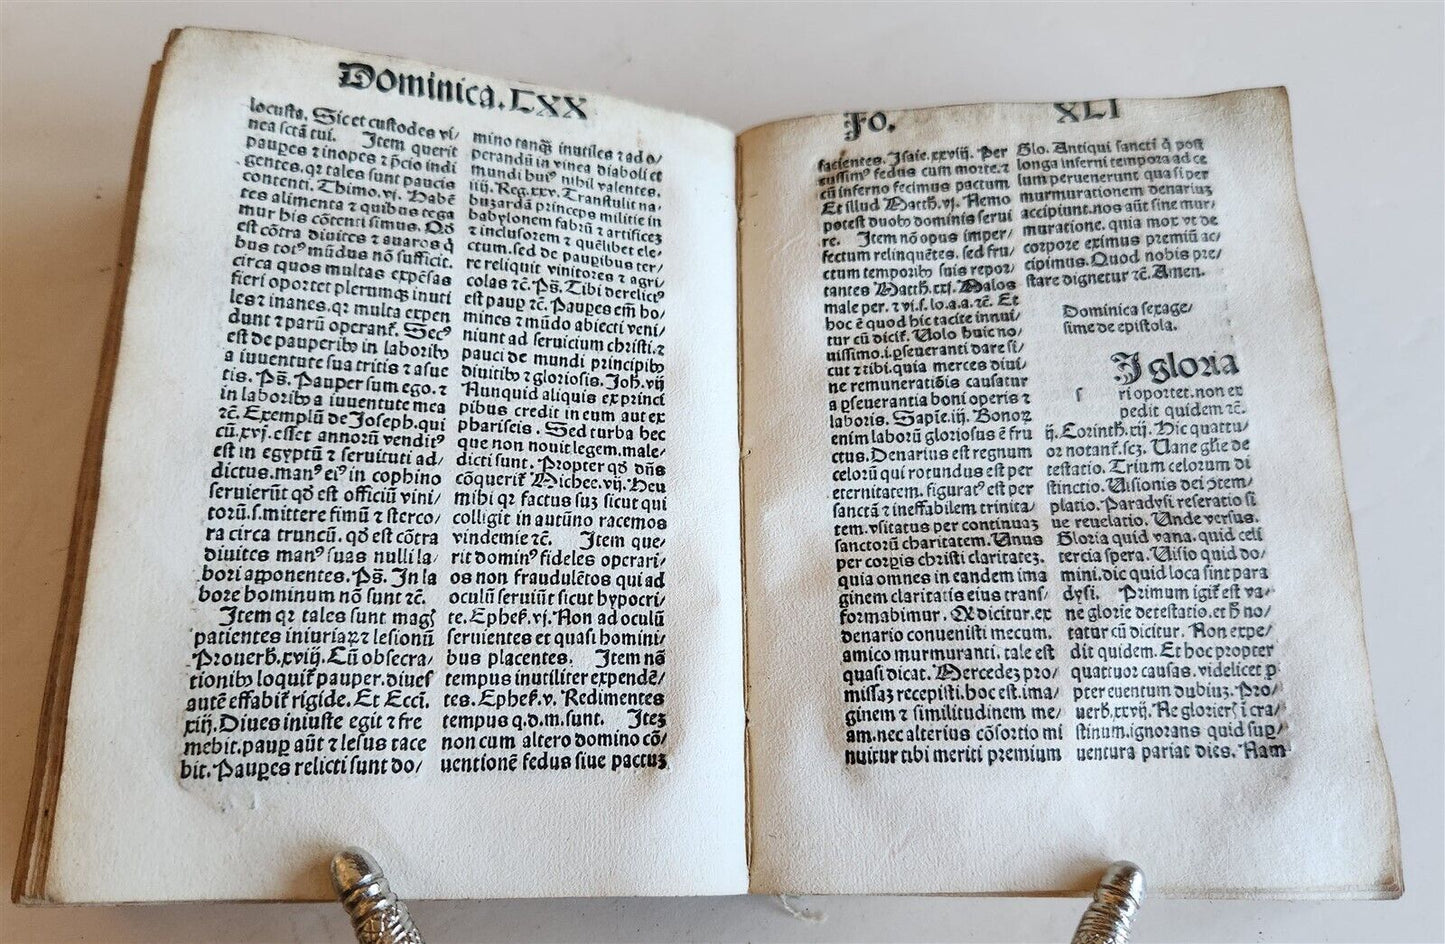 Dominica.LXX
locusta. Sic et custodes vi/
nea sctā tui. Item querit
paupes ⁊ inopes ⁊ p̄cio indi
gentes. qꝛ tales sunt paucis
contenti. Thimo. vj. Habē
tes alimenta ⁊ quibus tega
mur his cōtenti simus. Qḋ
est cōtra diuites ⁊ auaros q̇
bus totꝰ mūdus nō sufficit.
circa quos multas expēsas
fieri oportet plerumqꝫ inuti
les ⁊ inanes. qꝛ multa expen
dunt ⁊ parū operant̄. Secꝰ
est de pauperibꝰ in laboribꝰ
a iuuentute sua tritis ⁊ assue
tis. Ps̄. Pauper sum ego. ⁊
in laboribꝰ a iuuentute mea
⁊c̄. Exemplū de Joseph. qui
cū.xvj. esset annorū venditꝰ
est in egyptū ⁊ seruituti ad/
dictus. manꝰ eiꝰ in cophino
seruierūt qḋ est officiū vini/
torū. s. mittere fimū ⁊ sterco/
ra circa truncū. qḋ est cōtra
diuites manꝰ suas nulli la/
bori apponentes. Ps̄. In la
bore hominum nō sunt ⁊c̄.
Item qꝛ tales sunt magꝭ
patientes iniuriaꝝ ⁊ lesionū
Prouerb̄. xviij. Cū obsecra/
tionibꝰ loquit̄ pauper. diues
autē effabit̄ rigide. Et Ecci.
xiij. Diues iniuste egit ⁊ fre
mebit. paup aūt ⁊ lesus tace
bit. Paupes relicti sunt do/
mino tanqꝫ inutiles ⁊ ad o/
perandū in vinea diaboli et
mundi huiꝰ nihil valentes.
iiij. Reg. xxv. Transtulit na/
buzardā princeps militie in
babylonem fabrū ⁊ artificeꝫ
⁊ inclusorem ⁊ quēlibet ele/
ctum. sed de paupibus ter/
re reliquit vinitores ⁊ agri/
colas ⁊c̄. Ps̄. Tibi derelictꝰ
est paup ⁊c̄. Paupes em̄ ho/
mines ⁊ mūdo abiecti veni/
niunt ad seruicium christi. ⁊
pauci de mundi principibꝰ
diuitibꝰ ⁊ gloriosis. Joh. vij
Nunquid aliquis ex princi
pibus credit in eum aut ex
phariseis. Sed turba hec
que non nouit legem. male/
dicti sunt. Propter qḋ dn̄s
cōquerit̄ Michee. vij. Heu
mihi qꝛ factus suꝫ sicut qui
colligit in autūno racemos
vindemie ⁊c̄. Item que/
rit dominꝰ fideles operari/
os non fraudulētos qui ad
oculū seruiūt sicut hypocri/
te. Ephes̄. vj. Non ad oculū
seruientes et quasi homini/
bus placentes. Item nō
tempus inutiliter expendē/
tes. Ephes̄. v. Redimentes
tempus q. d. m. sunt. Iteꝫ
non cum altero domino cō/
uentionē fedus siue pactuꝫ
Fo. XLI
facientes. Isaie. xxviij. Per
cussimꝰ fedus cum morte. ⁊
cū inferno fecimus pactum
Et illud Matth̄. vj. Nemo
potest duobꝰ dominis serui
re. Item nō opus imper/
fectum relinquētes. sed fru/
ctum temporibꝰ suis repor/
tantes Matth̄. xxj. Malos
male per. ⁊ vi. s. lo. a. a. ⁊c̄. Et
hoc ē quod hic tacite innui/
tur cū dicit̄. Uolo huic no/
uissimo. i. pseueranti dare si/
cut ⁊ tibi. quia merces diui/
ne remuneratiōis causatur
a pseuerantia boni operis ⁊
laboris. Sapiē. iij. Bonoꝝ
enim laborū gloriosus ē fru
ctus. Denarius est regnum
celorū qui rotundus est per
eternitatem. figuratꝰ est per
sanctā ⁊ ineffabilem trinita/
tem. vsitatus per continuaꝫ
sanctorū charitatem. Unus
per corpꝭ christi claritateꝫ.
quia omnes in eandem ima
ginem claritatis eius trans/
formabimur. Qꝛ dicitur. ex
denario conuenisti mecum.
amico murmuranti. tale est
quasi dicat. Mercedeꝫ pro/
missaꝫ recepisti. hoc est. ima/
ginem ⁊ similitudinem me/
am. nec alterius cōsortio mi
nuitur tibi meriti premium
Glo. Antiqui sancti q̇ post
longa inferni tempora ad ce
lum peruenerunt quasi per
murmurationem denariuꝫ
accipiunt. nos aūt sine mur/
muratione. quia mox vt de
corpore eximus premiū ac/
cipimus. Quod nobis pre/
stare dignetur ⁊c̄. Amen.
Dominica sexage/
sime de epistola.
I gloria
s ri oportet. non ex
pedit quidem ⁊c̄.
ij. Corinth̄. xij. Hic quattu/
or notant̄. scꝫ. Uane gl̄ie de
testatio. Trium celorum di
stinctio. Uisionis dei ↄtem/
platio. Paradysi reseratio si
ue reuelatio. Unde versus.
Gloria quid vana. quid celi
tercia spera. Uisio quid do/
mini. dic quid loca sint para
dysi. Primum igit̄ est va/
ne glorie detestatio. et h̄ no/
tatur cū dicitur. Non expe/
dit quidem. Et hoc propter
quattuor causas. videlicet ꝓ
pter euentum dubiuꝫ. Pro/
uerb̄. xxvij. Ne glorierꝭ ī cra/
stinum. ignorans quid sup/
uentura pariat dies. Nam